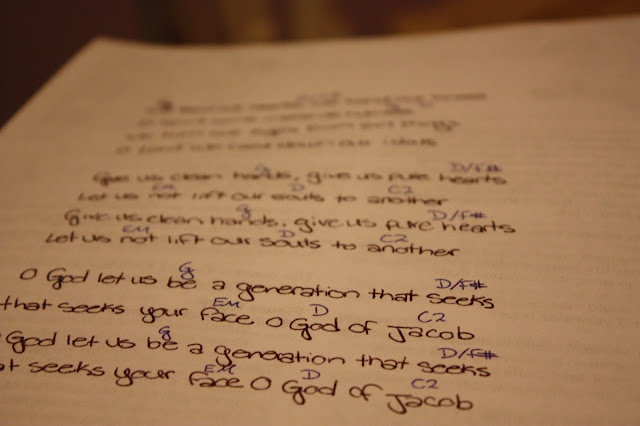 we turn our eyes from evil things
O Lord we cast down our idols
G D/F#
Give us clean hands, give us pure hearts
EM D C2
Let us not lift our souls to another
G D/F#
Give us clean hands, give us pure hearts
EM D C2
Let us not lift our souls to another
G D/F#
O God let us be a generation that seeks
EM D C2
that seeks your face O God of Jacob
G D/F#
God let us be a generation that seeks
EM D C2
at seeks your face O God of Jacob